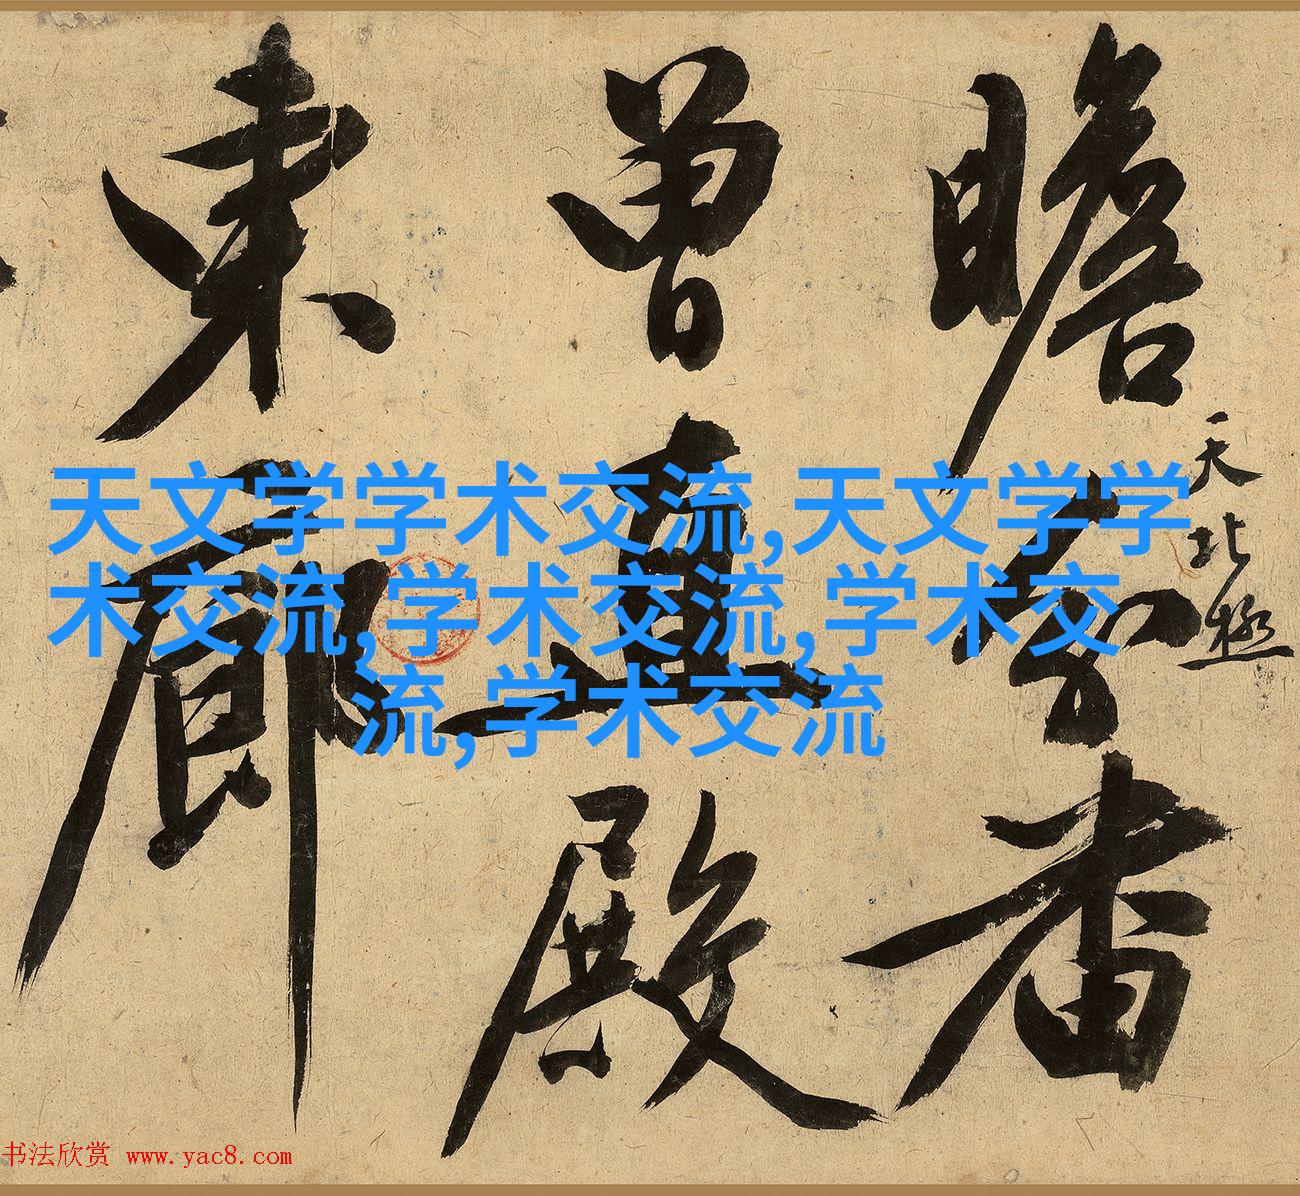 瞻
天北極
曾直殿
東廊
天文学学术交流,天文学学
术交流,学术交流,学术交
流,学术交流
书法欣赏 www.yac8.com